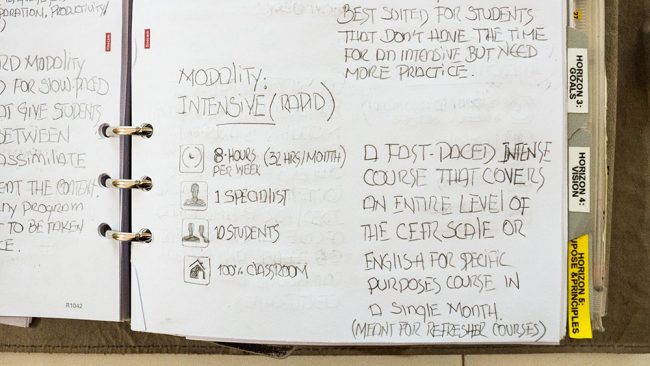 ORATION, PRODUCTIVITY/
RD MODALITY
D FOR SLOW-PACED
AT GIVE STUDENTS
BETWEEN
ASSIMILATE
ENT THE CONTEXT.
NY PROGRAM
T TO BE TAKEN
CE.
R1042
BEST SUITED FOR STUDENTS
THAT DON'T HAVE THE TIME
FOR AN INTENSIVE BUT NEED
MORE PRACTICE.
MODALITY:
INTENSIVE (RAPID)
8-HOURS (32 HRS/MONTH)
PER WEEK
1 SPECIALIST
10 STUDENTS
100% CLASSROOM
A FAST-PACED INTENSE
COURSE THAT COVERS
AN ENTIRE LEVEL OF
THE CEFR SCALE OR
ENGLISH FOR SPECIFIC
PURPOSES COURSE IN
A SINGLE MONTH.
(MEANT FOR REFRESHER COURSES)
HORIZON 3:
GOALS
HORIZON 4:
VISION
HORIZON 5:
POSE & PRINCIPLES